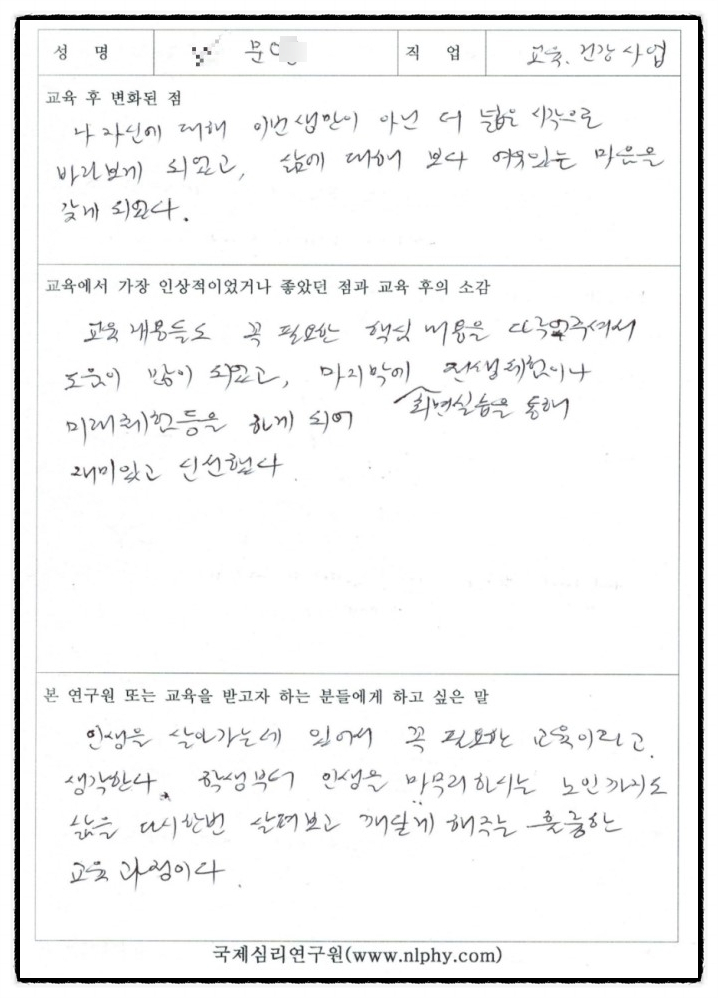 성 명 문 직 업 교육. 건강 사업
교육 후 변화된 점
나 자신에 대해 이번생만이 아닌 더 넓은 시각으로
바라보게 되었고, 삶에 대해 보다 여유있는 마음을
갖게 되었다.
교육에서 가장 인상적이었거나 좋았던 점과 교육 후의 소감
교육내용들도 꼭 필요한 핵심 내용을 교육해주셔서
도움이 많이 되었고, 마지막에 전생체험이나
미래체험등을 하게 되어 최면실습을 통해
재미있고 신선했다
본 연구원 또는 교육을 받고자 하는 분들에게 하고 싶은 말
인생을 살아가는데 있어서 꼭 필요한 교육이라고
생각한다. 학생부터 인생을 마무리하시는 노인까지도
삶을 다시한번 살펴보고 깨닫게 해주는 훌륭한
교육 과정이다.
국제심리연구원(www.nlphy.com)